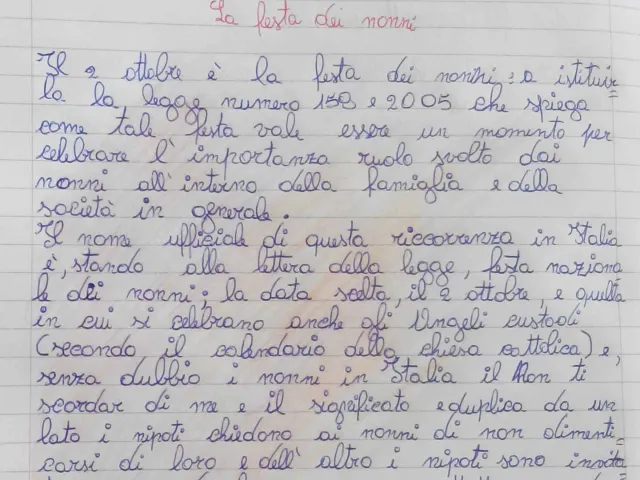 La festa dei nonni
Il 2 ottobre è la festa dei nonni: a istituir=
la la legge numero 159 e 2005 che spiega
come tale festa vale essere un momento per
celebrare l'importanza ruolo svolto dai
nonni all'interno della famiglia e della
società in generale.
Il nome ufficiale di questa riccorrenza in Italia
è, stando alla lettera della legge, festa naziona
le dei nonni; la data scelta, il 2 ottobre, e quella
in cui si celebrano anche gli Angeli custodi
(secondo il calendario della chiesa cattolica) e,
senza dubbio i nonni in Italia il Non ti
scordar di me e il significato e duplica da un
lato i nipoti chiedono ai nonni di non dimenti=
carsi di loro e dell'altro i nipoti sono invita